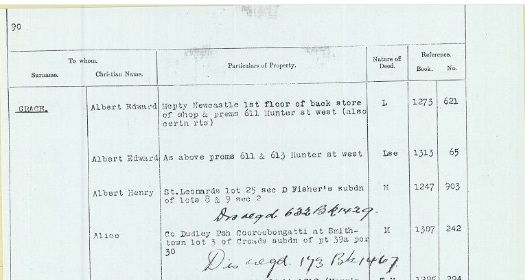 90
To whom.
Particulars of Property.
Nature of Deed.
Reference.
Surname.
Christian Name.
Book.
No.
GRACE.
Albert Edward
Mcpty Newcastle 1st floor of back store
of shop & prems 611 Hunter st west (also
certn rts)
L
1273
621
Albert Edward
As above prems 611 & 613 Hunter st west
Lse
1313
65
Albert Henry
St.Leonards lot 25 sec D Fisher's subdn
of lots 8 & 9 sec 2
M
1247
903
Dis regd 632 Bk 1429.
Alice
Co Dudley Psh Cooroobongatti at Smith-
town lot 3 of Croads subdn of pt 39a per
30
M
1307
242
Dis regd 193 Bk 1467
294